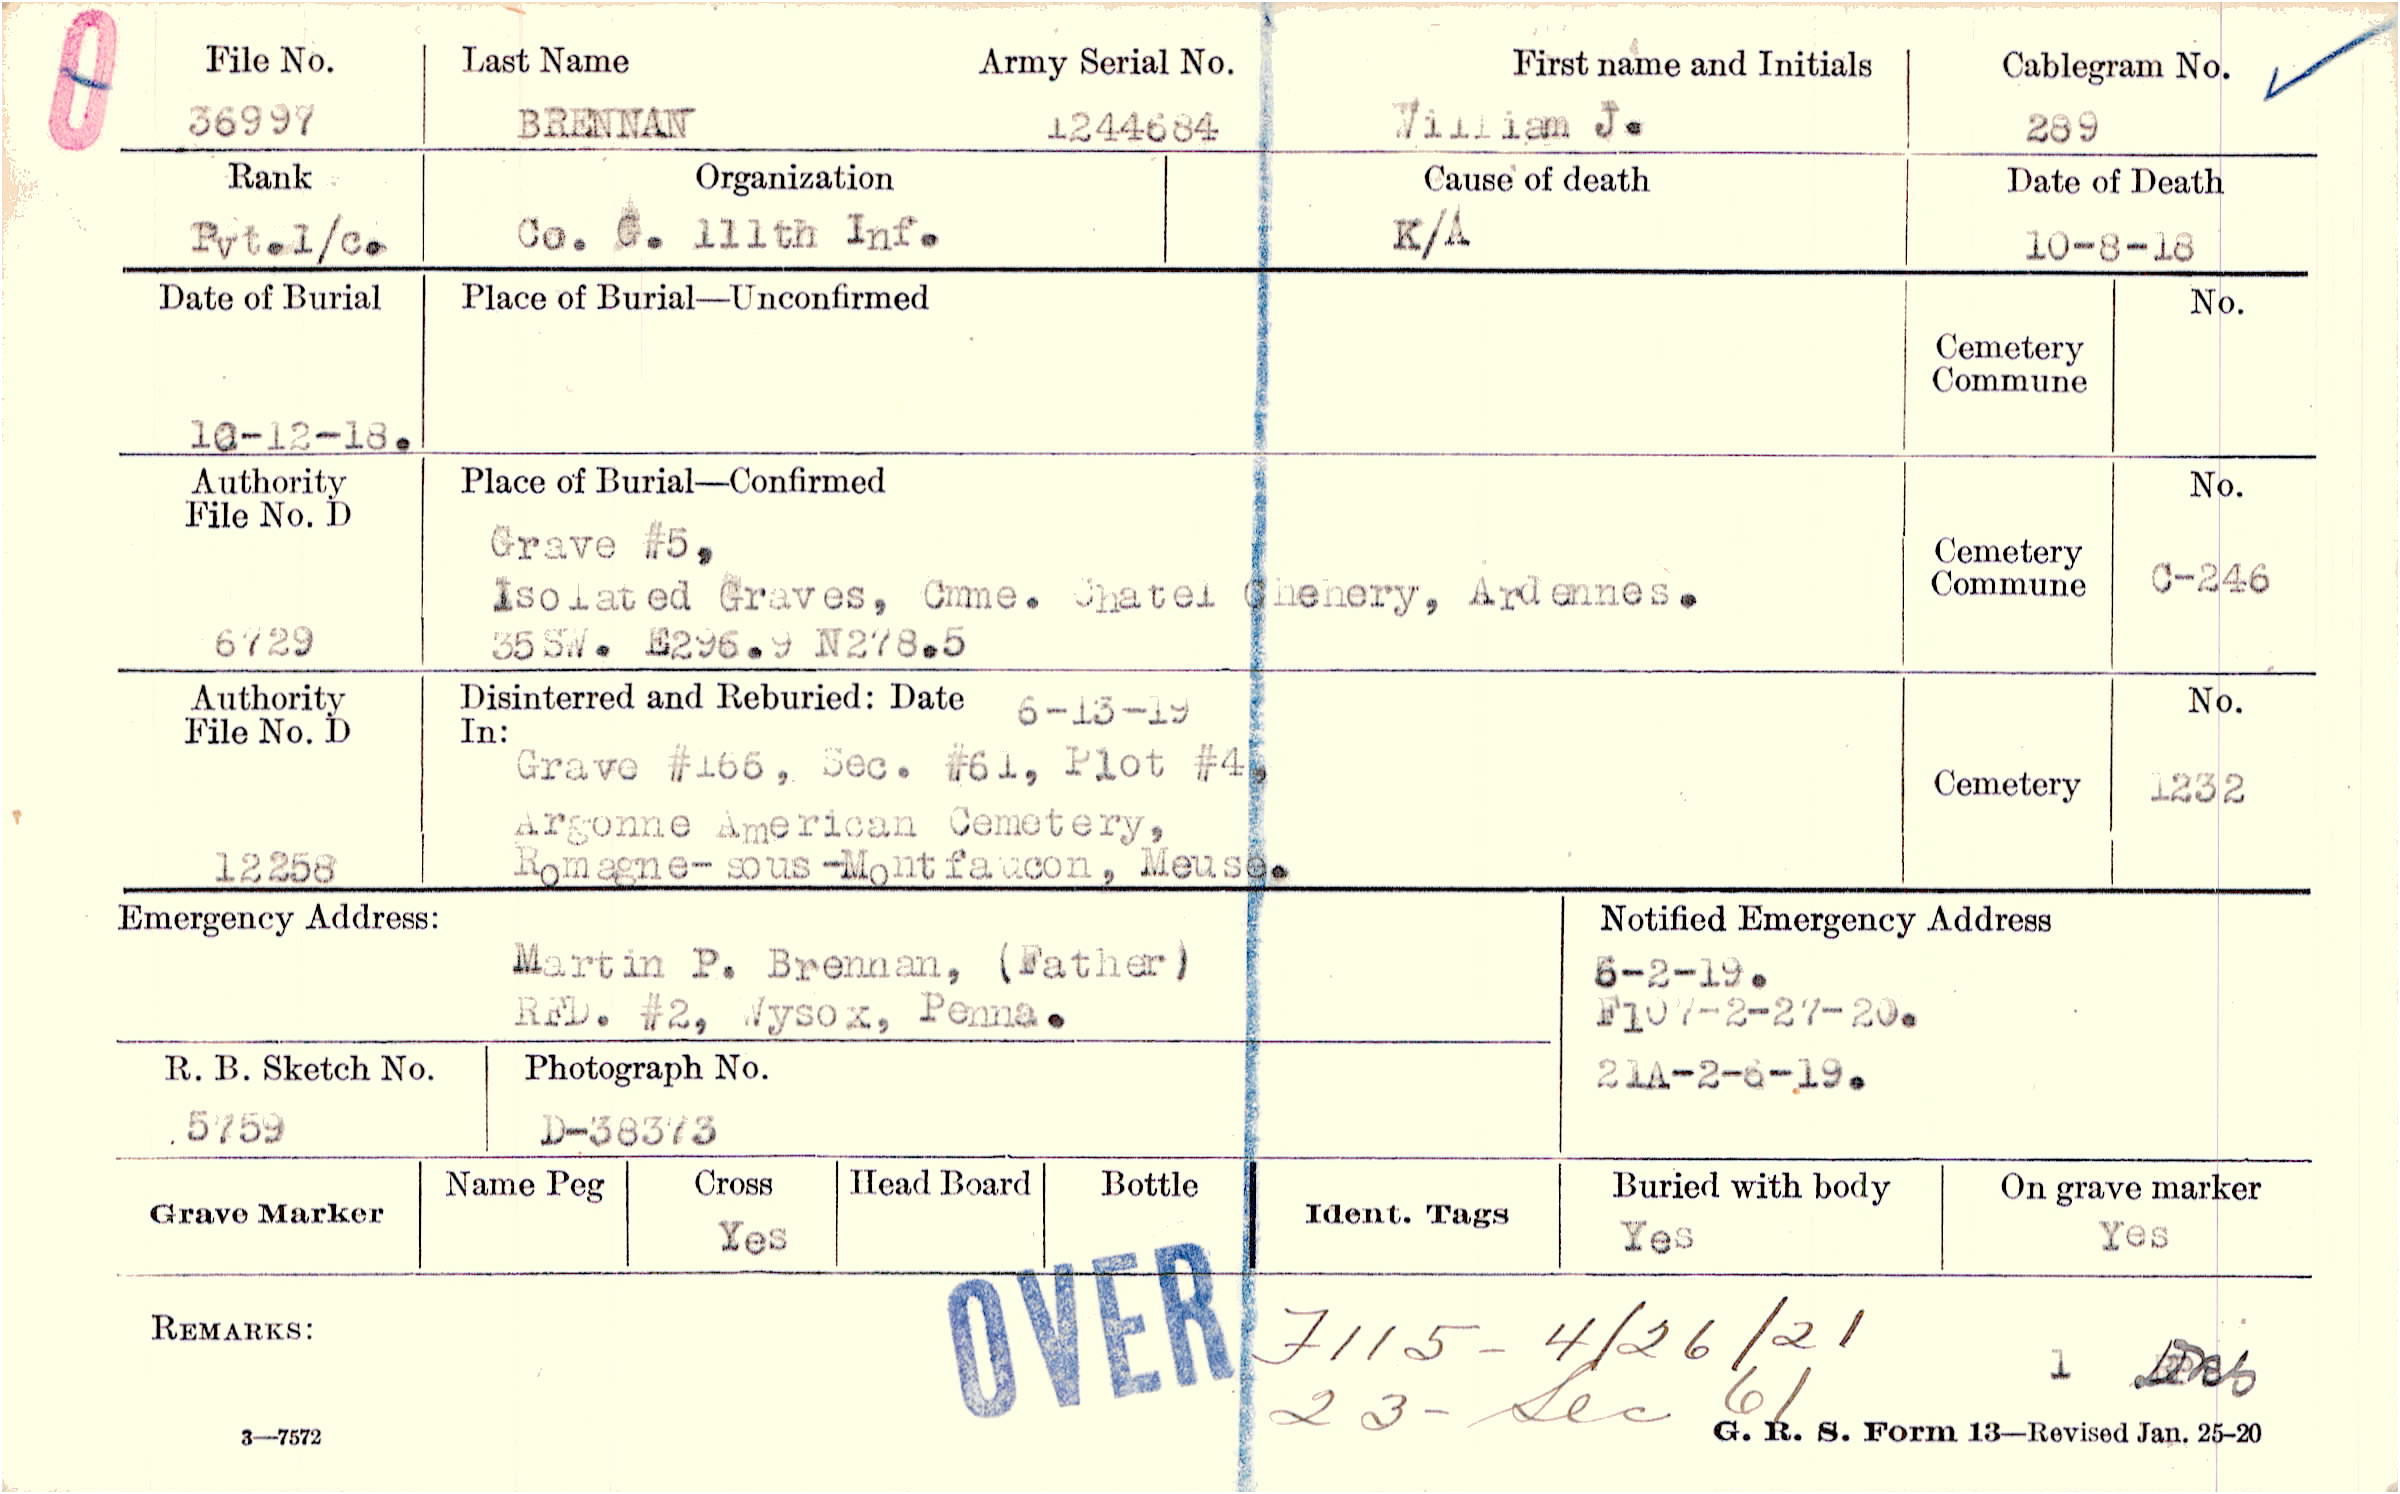 File No. Last Name Army Serial No. First name and Initials Cablegram No.
36997 BRENNAN 1244684 William J. 289
Rank Organization Cause of death Date of Death
Pvt.1/c. Co. G. 111th Inf. K/A 10-8-18
Date of Burial Place of Burial—Unconfirmed No.
Cemetery
Commune
10-12-18.
Authority Place of Burial—Confirmed No.
File No. D
Grave #5,
Cemetery
Isolated Graves, Cmme. Chatel Chehery, Ardennes. Commune C-246
6729 35SW. E296.9 N278.5
Authority Disinterred and Reburied: Date 6-13-19 No.
File No. D In:
Grave #166, Sec. #61, Plot #4, Cemetery 1232
Argonne American Cemetery,
12258 Romagne-sous-Montfaucon, Meuse.
Emergency Address: Notified Emergency Address
Martin P. Brennan, (Father) 5-2-19.
RFD. #2, Wysox, Penna. F107-2-27-20.
R. B. Sketch No. Photograph No. 21A-2-6-19.
5759 D-38373
Grave Marker Name Peg Cross Head Board Bottle Ident. Tags Buried with body On grave marker
Yes Yes Yes
OVER
REMARKS: 7115- 4/26/21
1
23- Sec 61
3—7572 G. R. S. Form 13—Revised Jan. 25-20